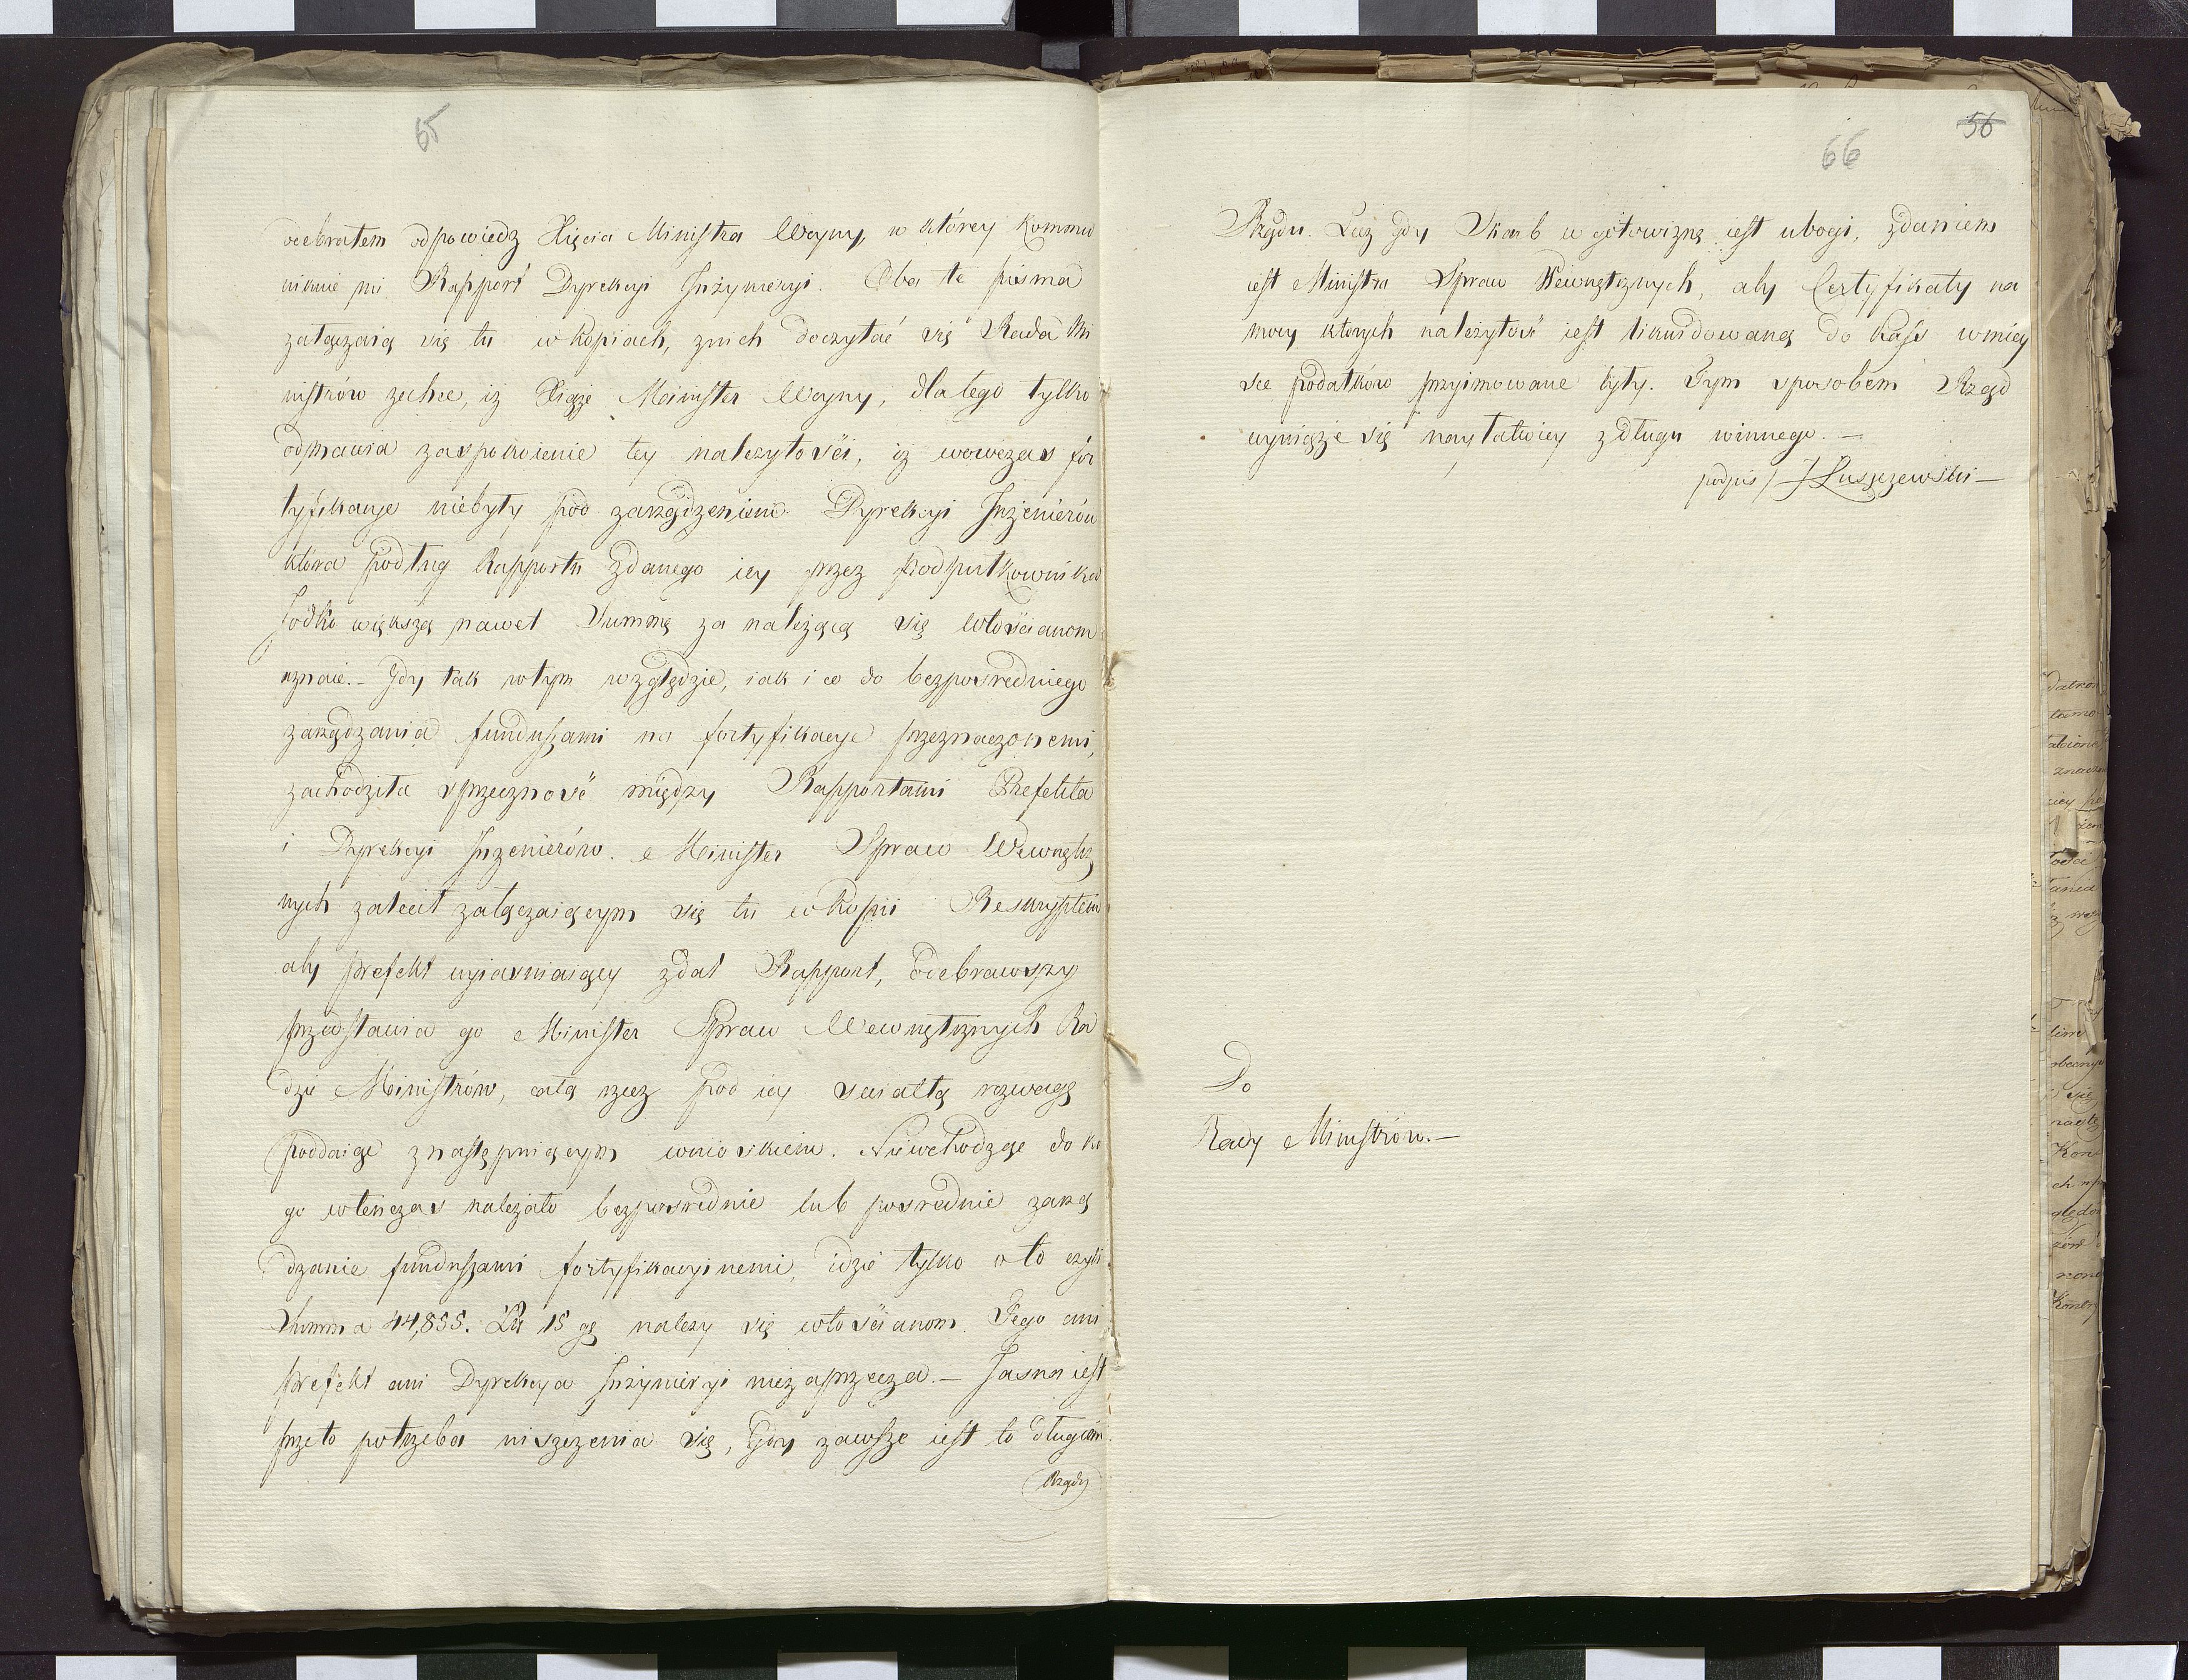 65
odebrałem odpowiedz Xięcia Ministra Woyny, w którey kommu
nikuie mi Rapport Dyrekcyi Inżynieryi. Oba te pisma
załączaią się tu w kopiach, z nich doczytać się Rada Mi
nistrów zechce, iż Xiążę Minister Woyny, dla tego tylko
odmawia zaspokoienie tey należytości, iż wowczas for
tyfikacye niebyły pod zarządzeniem Dyrekcyi Inżenierów
która podług Rapportu zdanego iey przez Podpułkownika
Jodko większą nawet Summę za należącą się włościanom
uznaie. – Gdy tak w tym względzie, iak i co do bezpośredniego
zarządzania funduszami na fortyfikacye przeznaczonemi,
zachodziła sprzeczność między Rapportami Prefekta
i Dyrekcyi Inżenierów. Minister Spraw Wewnętrz
nych zalecił załączaiącym się tu w kopii Reskryptem
aby prefekt wyiaśniaiący zdał Rapport, odebrawszy
przedstawia go Minister Spraw Wewnętrznych Ra
dzie Ministrów, całą rzecz pod iey światłą rozwagę
poddaiąc z następuiącym wnioskiem. Niewchodząc do ko
go wtenczas należało bezpośrednie lub pośrednie zarzą
dzanie funduszami fortyfikacyinemi, idzie tylko o to czyli
Summa 44,855. Zł 15 gr należy się włościanom. Tego ani
prefekt ani Dyrekcya Inżynieryi niezaprzecza. – Jasna iest
przeto potrzeba uiszczenia się, Gdy zawsze iest to długiem
Rządu
56
66
Rządu. Lecz gdy Skarb w gotowiznę iest ubogi, zdaniem
iest Ministra Spraw Wewnętrznych, aby Certyfikaty na
mocy których należytość iest likwidowaną do kass w miey
sce podatków przyimowane były. Tym sposobem Rząd
wyniżdzie się nayłatwiey z długu winnego. –
podpis / J Łuszczewski –
Do
Rady Ministrów. –